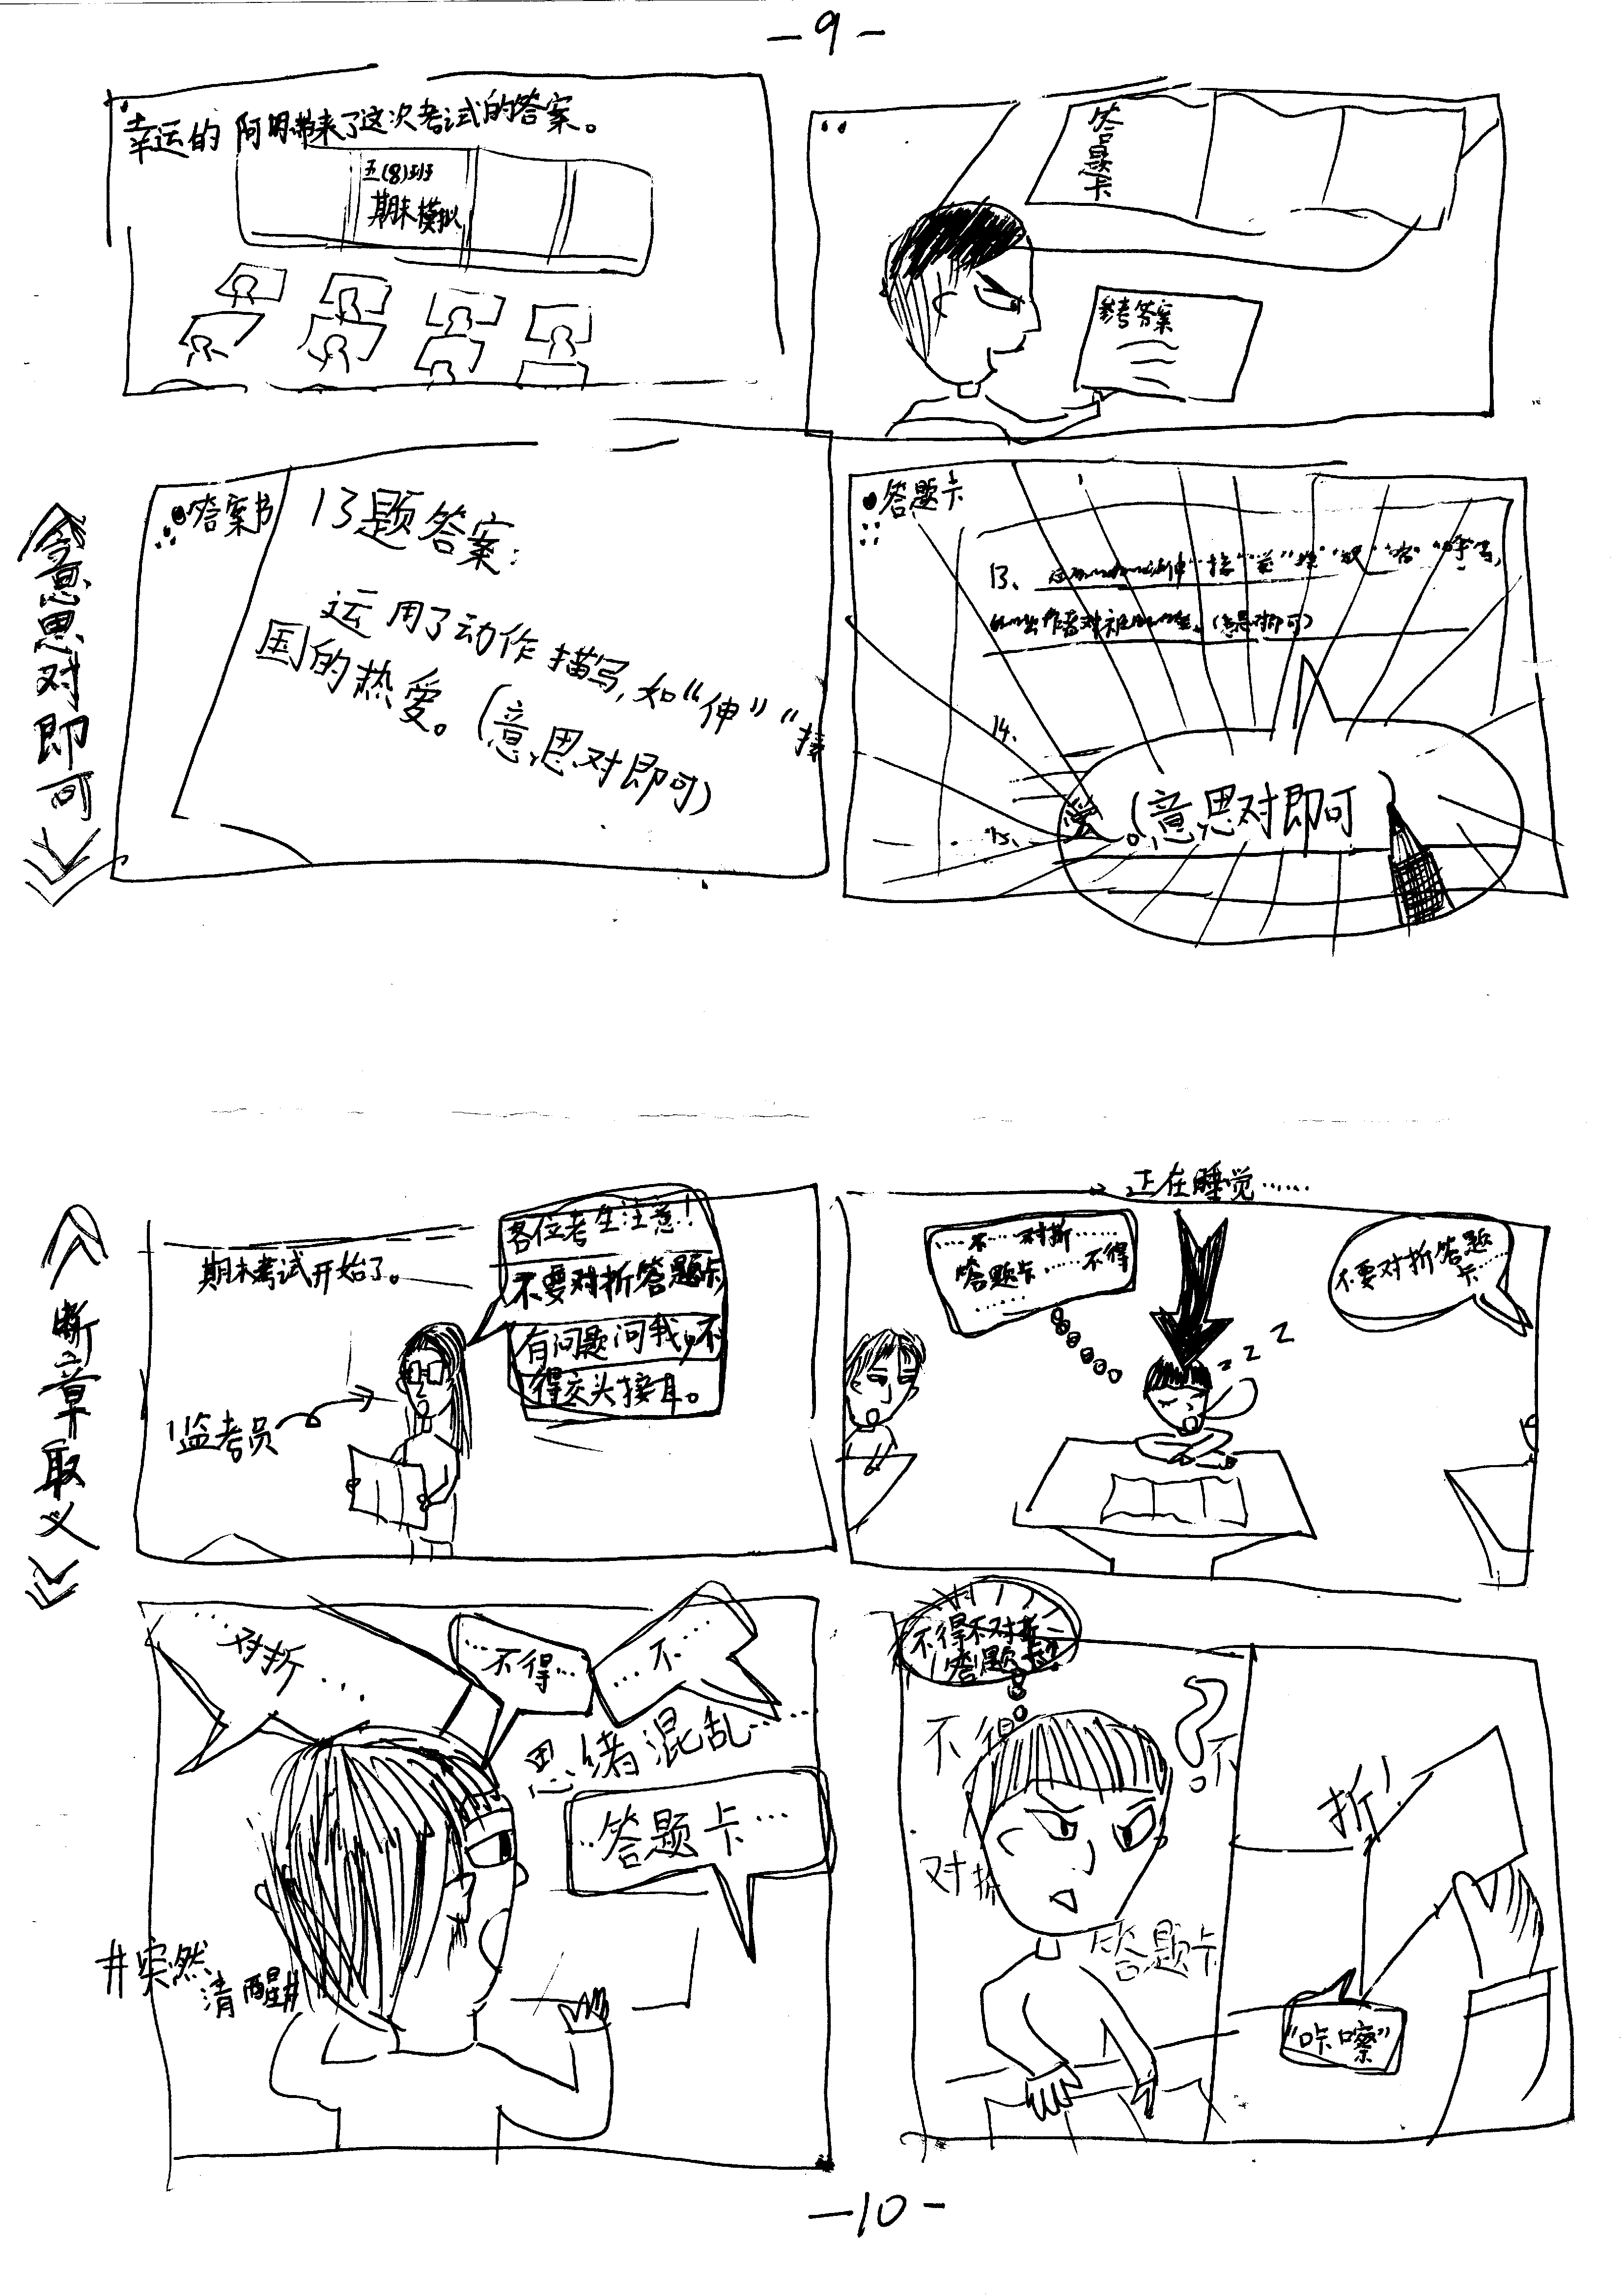 -9-
幸运的阿明带来了这次考试的答案。
五(8)班
期末模拟
答题卡
参考答案
意思对即可
答案书
13题答案:
运用了动作描写,如“伸”“接
国的热爱。(意思对即可)
答题卡
13、
(意思对即可)
14、
15、
爱。(意思对即可
断章取义
期末考试开始了。
各位考生注意!
不要对折答题卡,
有问题问我,不
得交头接耳。
监考员
正在睡觉……
……不……对折……
答题卡……不得
……
不要对折答题
卡……
zzz
…对折…
…不得…
…不…
思绪混乱……
…答题卡…
#突然
清醒#
不得不对折
答题卡?
不得
不
对折
答题卡
折!
“咔嚓”
-10-